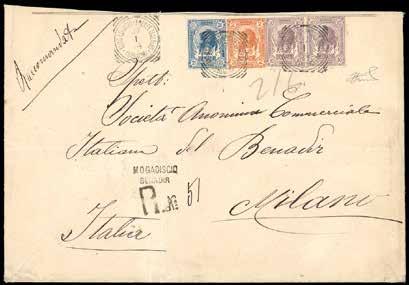 Raccomandata
2/6
Spett:
Società Anonima Commerciale
Italiana del Benadir
MOGADISCIO
BENADIR
R No 51
Milano
Italia